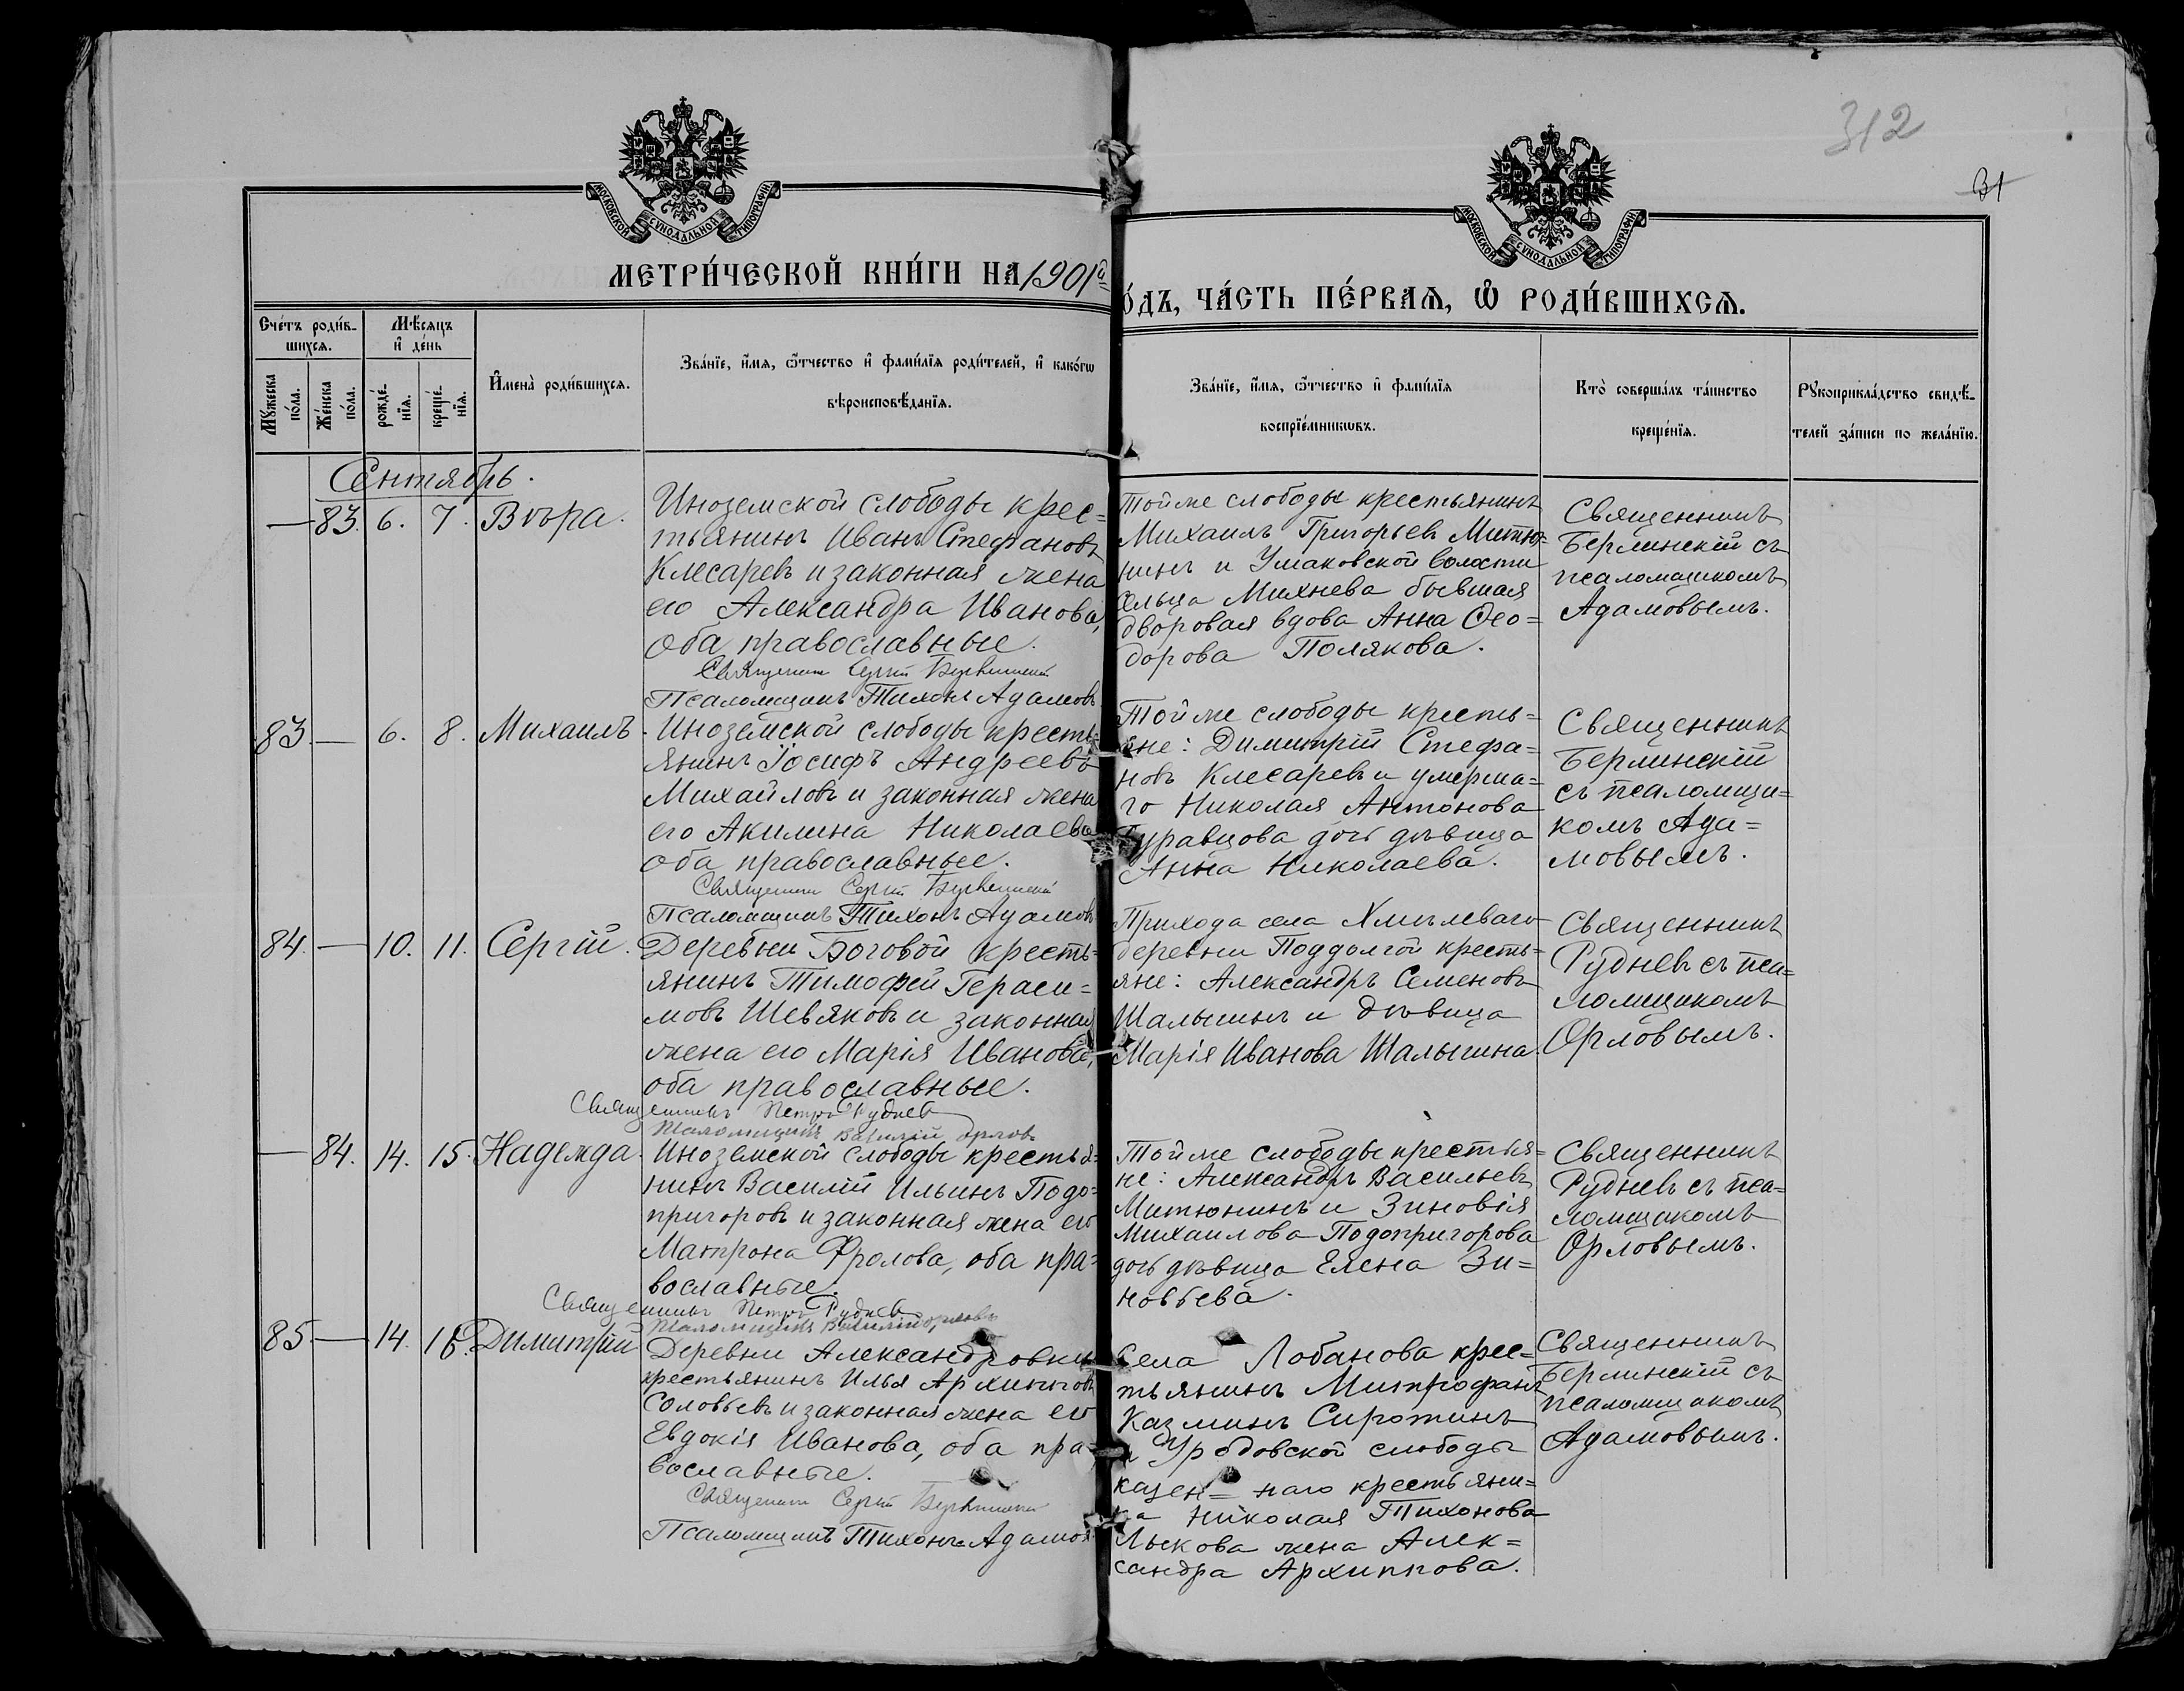 312
31
МОСКОВСКОЙ СѴНОДАЛЬНОЙ ТИПОГРАФІИ
МОСКОВСКОЙ СѴНОДАЛЬНОЙ ТИПОГРАФІИ
МЕТРИ́ЧЕСКОЙ КНИ́ГИ НА 1901й
О́ДЪ, ЧА́СТЬ ПЕ́РВАѦ, Ѡ҆ РОДИ́ВШИХСѦ.
Сче́тъ роди́в-
шихсѧ.
Мꙋ́жеска
по́ла.
Же́нска
по́ла.
Мѣ́сѧцъ
и҆ де́нь
рожде́-
нїѧ.
креще́-
нїѧ.
И҆мена̀ роди́вшихсѧ.
Зва́нїе, и҆́мѧ, ѻ҆́тчество и҆ фами́лїѧ роди́телей, и҆ како́гѡ
вѣроисповѣ́данїѧ.
Зва́нїе, и҆́мѧ, ѻ҆́тчество и҆ фами́лїѧ
воспрїе́мникѡвъ.
Кто̀ соверша́лъ та́инство
креще́нїѧ.
Рꙋкоприкла́дство свидѣ́-
телей за́писи по жела́нїю.
Сентябрь.
— 83. 6. 7. Вѣра.
Иноземской слободы крес=
тьянинъ Иванъ Стефановъ
Клесаревъ и законная жена
его Александра Иванова,
оба православные.
Священникъ Сергій
Псаломщикъ Тихонъ Адамовъ
Тойже слободы крестьянинъ
Михаилъ Григорьевъ Митю=
нинъ и Ушаковской волости
сельца Михнева бывшая
дворовая вдова Анна Ѳео=
дорова Полякова.
Священникъ
Берлинскій съ
псаломщикомъ
Адамовымъ.
83. — 6. 8. Михаилъ.
Иноземской слободы кресть=
янинъ Іосифъ Андреевъ
Михайловъ и законная жена
его Акилина Николаева
оба православные.
Священникъ Сергій
Псаломщикъ Тихонъ Адамовъ
Тойже слободы кресть=
яне: Димитрій Стефа=
новъ Клесаревъ и умерша=
го Николая Антонова
Гуравцова дочь дѣвица
Анна Николаева.
Священникъ
Берлинскій
съ псаломщи=
комъ Ада=
мовымъ.
84. — 10. 11. Сергій.
Деревни Боговой кресть=
янинъ Тимофей Гераси=
мовъ Шевяковъ и законная
жена его Марія Иванова,
оба православные.
Священникъ Петръ Рудневъ
Псаломщикъ Василій Орловъ
Прихода села Хмѣлеваго
деревни Поддолгой кресть=
яне: Александръ Семеновъ
Шалыгинъ и дѣвица
Марія Иванова Шалыгина.
Священникъ
Рудневъ съ пса=
ломщикомъ
Орловымъ.
— 84. 14. 15. Надежда.
Иноземской слободы крестья=
нинъ Василій Ильинъ Подо=
пригоровъ и законная жена его
Матрона Фролова, оба пра=
вославные.
Священникъ Петръ Рудневъ
Псаломщикъ Василій Орловъ
Тойже слободы крестья=
не: Александръ Васильевъ
Митюнинъ и Зиновія
Михаилова Подопригорова
дочь дѣвица Елена Зи=
новьева.
Священникъ
Рудневъ съ пса=
ломщикомъ
Орловымъ.
85. — 14. 16. Димитрій
Деревни Александровки
крестьянинъ Илья Архиповъ
Соловьевъ и законная жена его
Евдокія Иванова, оба пра=
вославные.
Священникъ Сергій
Псаломщикъ Тихонъ Адамовъ
Села Лобанова крес=
тьянинъ Митрофанъ
Казминъ Сиротинъ
и слободы
казен= наго крестьяни=
на Николая Тихонова
Лыскова жена Алек=
сандра Архиппова.
Священникъ
Берлинскій съ
псаломщикомъ
Адамовымъ.